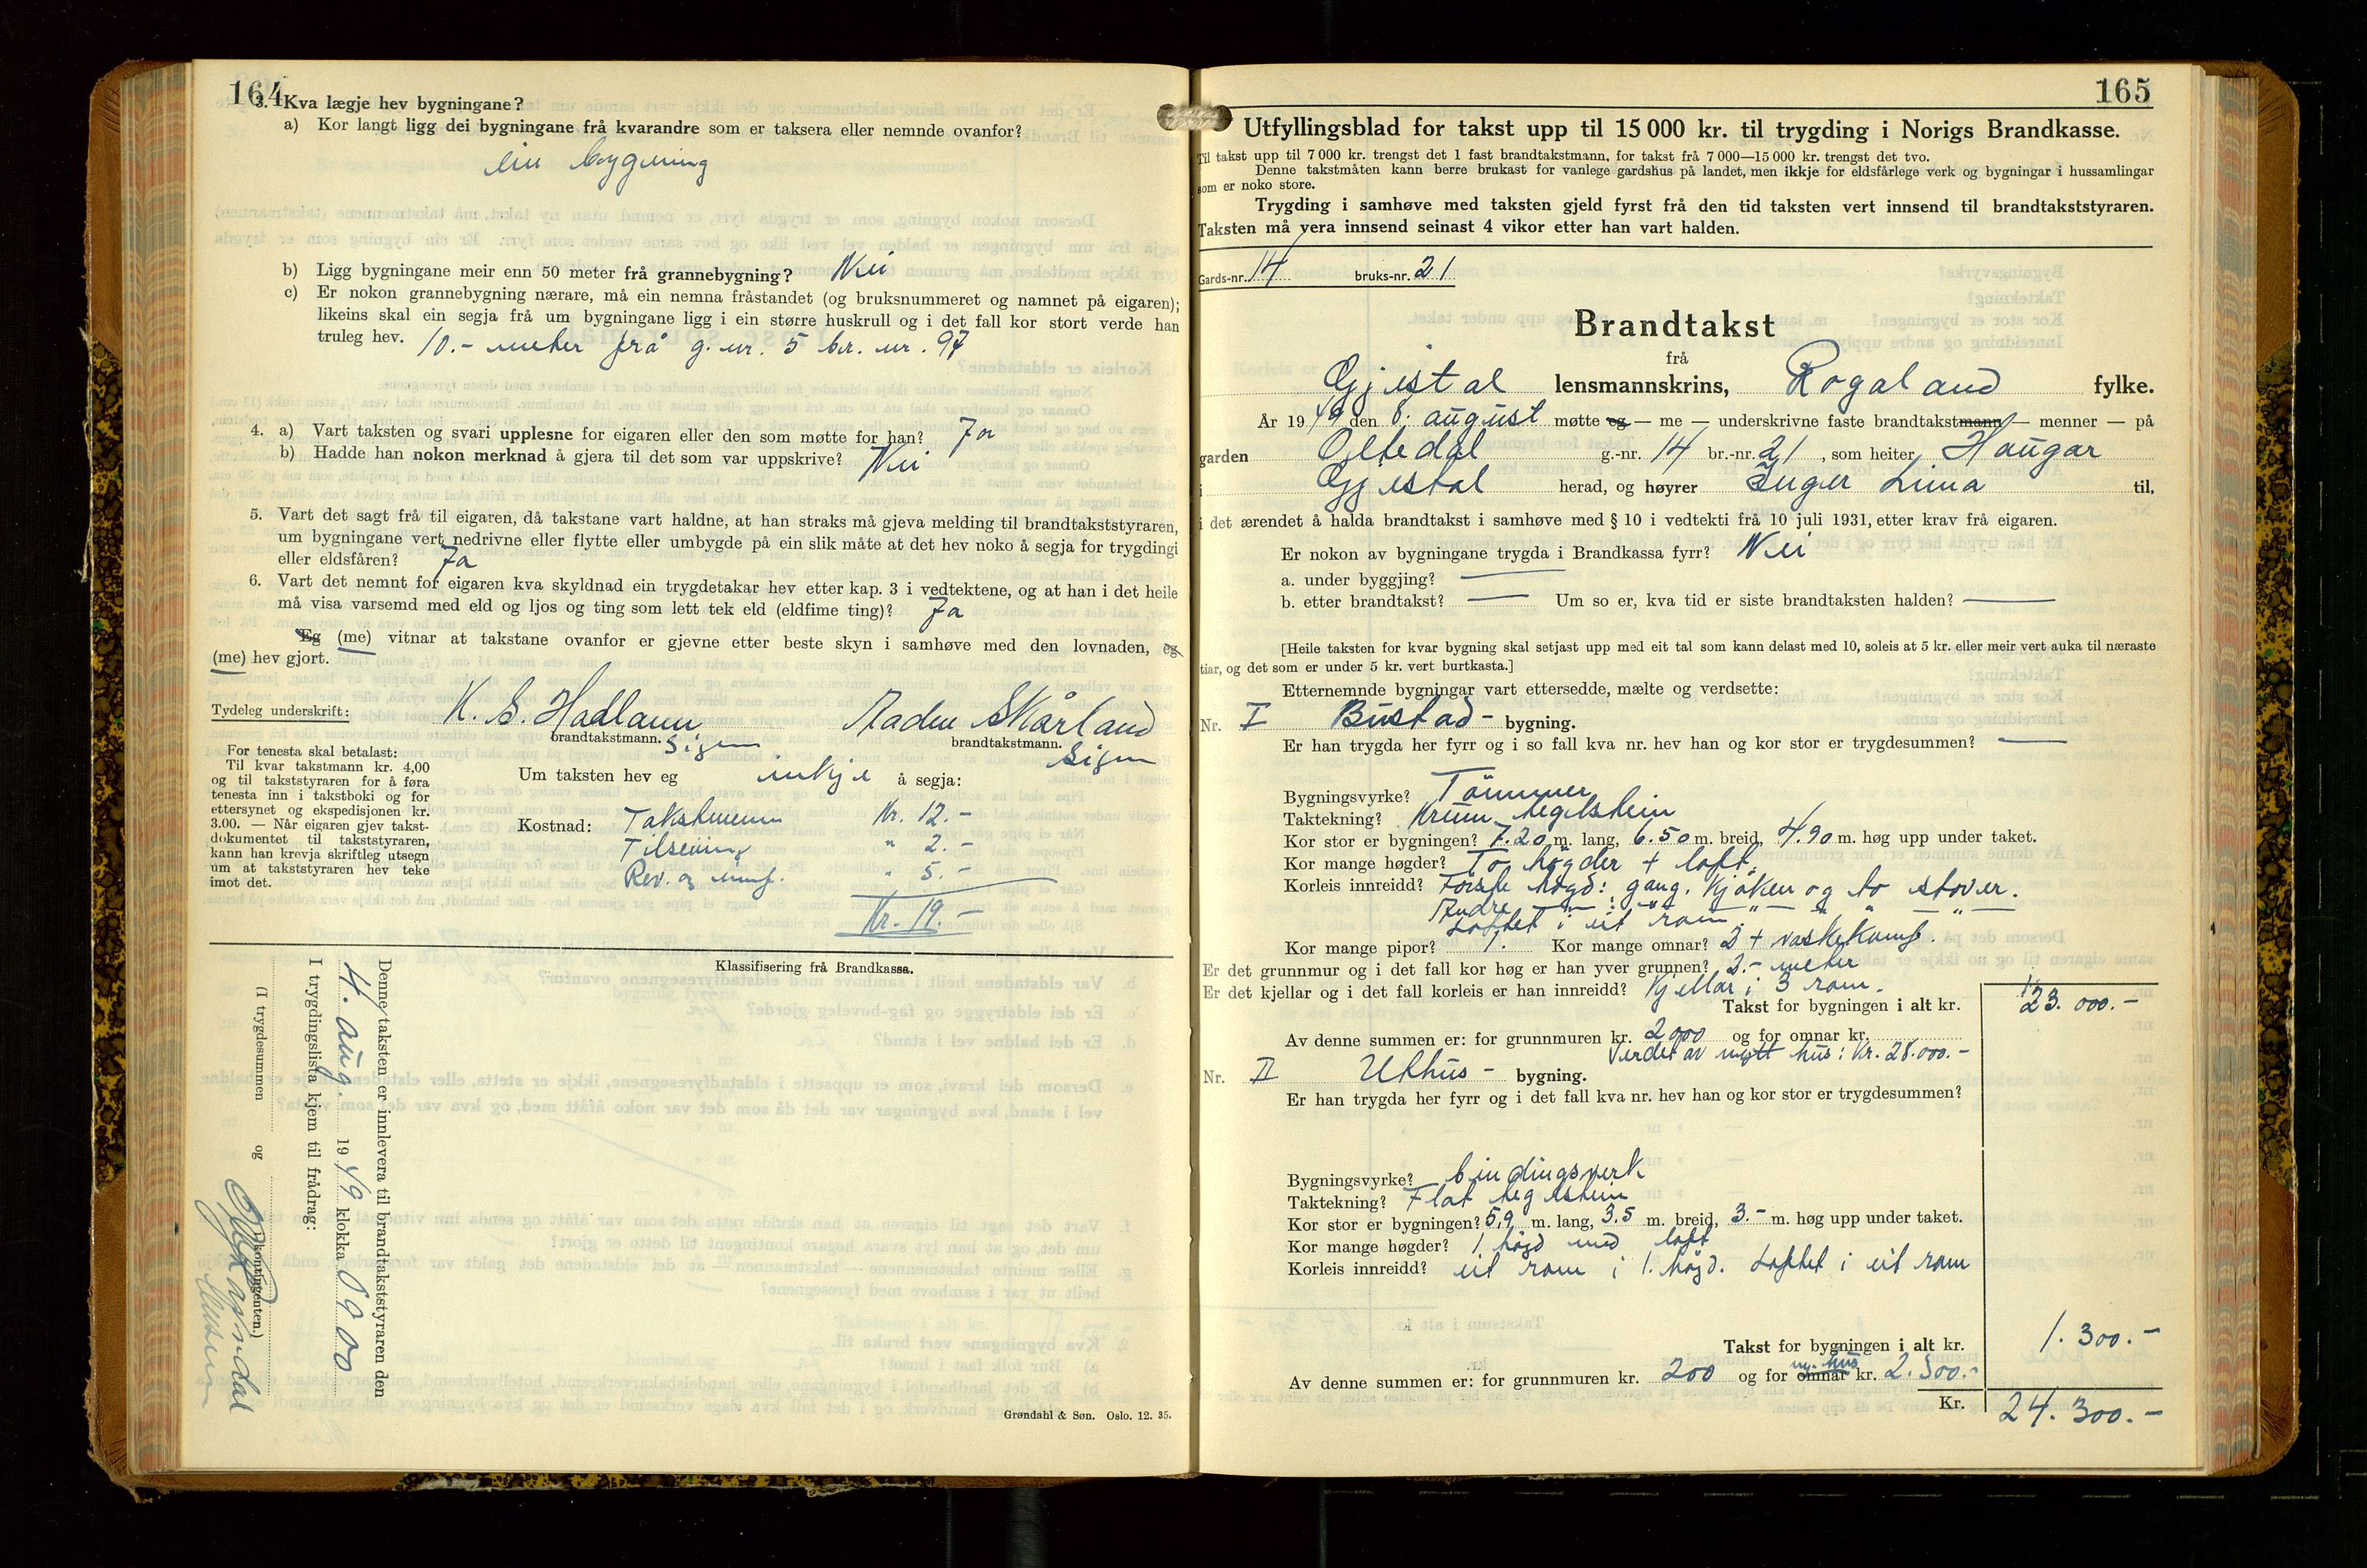 164
3. Kva lægje hev bygningane?
a) Kor langt ligg dei bygningane frå kvarandre som er taksera eller nemnde ovanfor?
ein bygning
b) Ligg bygningane meir enn 50 meter frå grannebygning? Nei
c) Er nokon grannebygning nærare, må ein nemna fråstandet (og bruksnummeret og namnet på eigaren);
likeins skal ein segja frå um bygningane ligg i ein større huskrull og i det fall kor stort verde han
truleg hev. 10.- meter frå g. nr. 5 br. nr. 97
4. a) Vart taksten og svari upplesne for eigaren eller den som møtte for han? Ja
b) Hadde han nokon merknad å gjera til det som var uppskrive? Nei
5. Vart det sagt frå til eigaren, då takstane vart haldne, at han straks må gjeva melding til brandtakststyraren,
um bygningane vert nedrivne eller flytte eller umbygde på ein slik måte at det hev noko å segja for trygdingi
eller eldsfåren? Ja
6. Vart det nemnt for eigaren kva skyldnad ein trygdetakar hev etter kap. 3 i vedtektene, og at han i det heile
må visa varsemd med eld og ljos og ting som lett tek eld (eldfime ting)? Ja
Eg (me) vitnar at takstane ovanfor er gjevne etter beste skyn i samhøve med den lovnaden, eg
(me) hev gjort.
Tydeleg underskrift: K. S. Hadland Aadne Skårland
brandtakstmann. sign brandtakstmann. sign
For tenesta skal betalast:
Til kvar takstmann kr. 4,00
og til takststyraren for å føra
tenesta inn i takstboki og for
ettersynet og ekspedisjonen kr.
3.00. — Når eigaren gjev takst-
dokumentet til takststyraren,
kann han krevja skriftleg utsegn
um at takststyraren hev teke
imot det.
Um taksten hev eg inkje å segja:
Kostnad: Takstmenn Kr. 12.-
Tilsening " 2.-
Rev. og innf. " 5.-
Kr. 19.-
Klassifisering frå Brandkassa.
Denne taksten er innlevera til brandtakststyraren den
4. aug. 1949 klokka 0900
I trygdingslista kjem til frådrag:
(I trygdesummen og kontingenten.)
Grøndahl & Søn. Oslo. 12. 35.
165
Utfyllingsblad for takst upp til 15 000 kr. til trygding i Norigs Brandkasse.
Til takst upp til 7 000 kr. trengst det 1 fast brandtakstmann, for takst frå 7 000—15 000 kr. trengst det tvo.
Denne takstmåten kann berre brukast for vanlege gardshus på landet, men ikkje for eldsfårlege verk og bygningar i hussamlingar
som er noko store.
Trygding i samhøve med taksten gjeld fyrst frå den tid taksten vert innsend til brandtakststyraren.
Taksten må vera innsend seinast 4 vikor etter han vart halden.
Gards-nr. 14 bruks-nr. 21
Brandtakst
frå
Gjestal lensmannskrins, Rogaland fylke.
År 1949 den 8. august møtte eg — me — underskrivne faste brandtakstmann — menner — på
garden Oltedal g.-nr. 14 br.-nr. 21, som heiter Haugar
i Gjestal herad, og høyrer Inger Lima til,
i det ærendet å halda brandtakst i samhøve med § 10 i vedtekti frå 10 juli 1931, etter krav frå eigaren.
Er nokon av bygningane trygda i Brandkassa fyrr? Nei
a. under byggjing? —
b. etter brandtakst? — Um so er, kva tid er siste brandtaksten halden? —
[Heile taksten for kvar bygning skal setjast upp med eit tal som kann delast med 10, soleis at 5 kr. eller meir vert auka til næraste
tiar, og det som er under 5 kr. vert burtkasta.]
Etternemnde bygningar vart ettersedde, mælte og verdsette:
Nr. I Bustad- bygning.
Er han trygda her fyrr og i so fall kva nr. hev han og kor stor er trygdesummen? —
Bygningsvyrke? Tömmer
Taktekning? Krum teglstein
Kor stor er bygningen? 7.20 m. lang, 6.50 m. breid, 4.90 m. høg upp under taket.
Kor mange høgder? To høgder + loft.
Korleis innreidd? Förste høgd: gang, kjöken og to stover.
Andre — " — : — " — " — " —
Loftet i eit rom
Kor mange pipor? 1. Kor mange omnar? 2 + vaskekomf.
Er det grunnmur og i det fall kor høg er han yver grunnen? 2.- meter
Er det kjellar og i det fall korleis er han innreidd? Kjellar i 3 rom.
Takst for bygningen i alt kr. 23.000.-
Av denne summen er: for grunnmuren kr. 2000 og for omnar kr.
Verdet av nytt hus: Kr. 28.000.-
Nr. II Uthus- bygning.
Er han trygda her fyrr og i det fall kva nr. hev han og kor stor er trygdesummen?
Bygningsvyrke? bindingsverk
Taktekning? Flat teglstein
Kor stor er bygningen? 5,9 m. lang, 3.5 m. breid, 3.- m. høg upp under taket.
Kor mange høgder? 1 høgd med loft
Korleis innreidd? eit rom i 1. høgd. Loftet i eit rom
Takst for bygningen i alt kr. 1.300.-
Av denne summen er: for grunnmuren kr. 200 og for omnar ny. hus kr. 2.500.-
Kr. 24.300.-